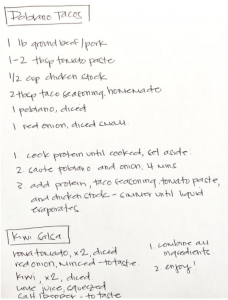 Poblano Tacos
1 lb ground beef/pork
1-2 tbsp tomato paste
1/2 cup chicken stock
2 tbsp taco seasoning, homemade
1 poblano, diced
1 red onion, diced small
1 cook protein until cooked, set aside.
2. saute poblano and onion, 4 mins
3 add protein, taco seasoning, tomato paste,
and chicken stock - simmer until liquid
evaporates
Kiwi Salsa
roma tomato, x2, diced
red onion, minced - to taste
kiwi, x2, diced
lime juice, squeezed
salt + pepper - to taste
1. combine all
ingredients
2. enjoy!